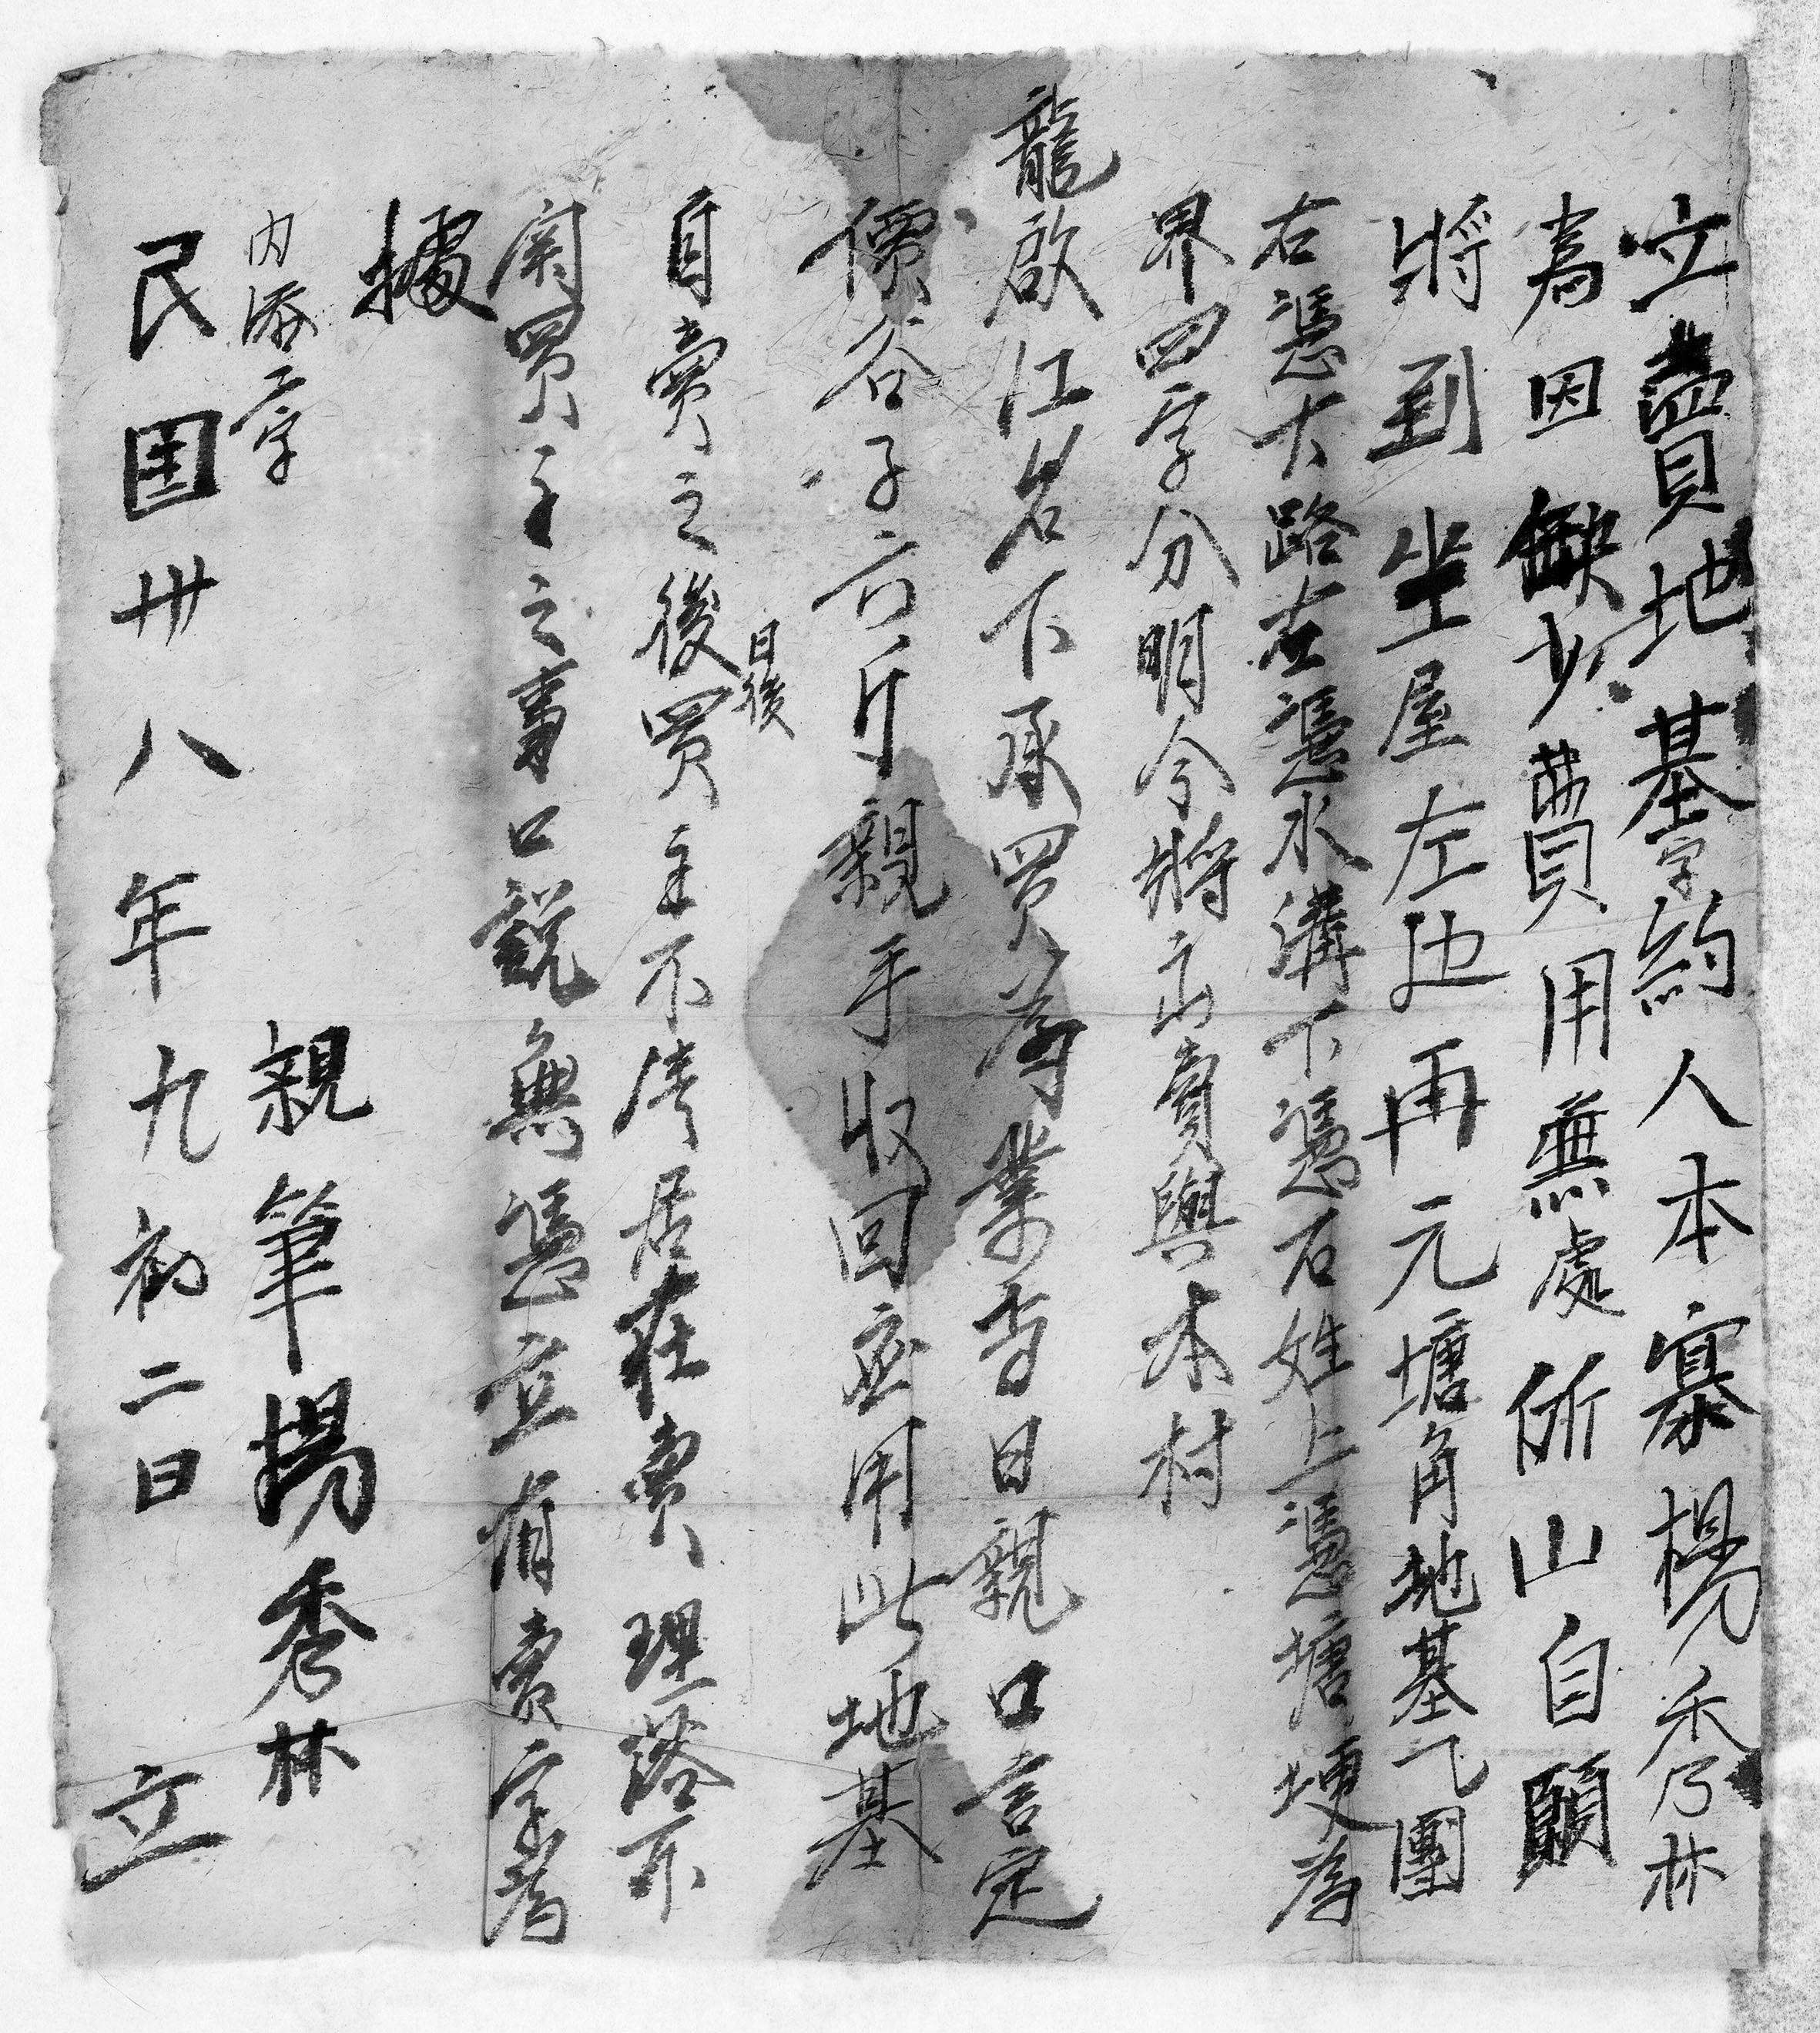 立賣地基字約人本寨楊秀林
為因缺少費用無處所山自願
將到坐屋左边再元塘角地基乙團
右憑大路左憑水溝下憑石姓上憑塘埂為
界四字分明今將出賣與本村
龍啟江名下承買為業當日親口言定
價谷子六斤親手收回應用此地基
自賣之後日後買主不清居在賣理落不
関買主之事口說無憑立有賣字為
據
內添二字
親筆揚秀林
民国卅八年九初二日 立